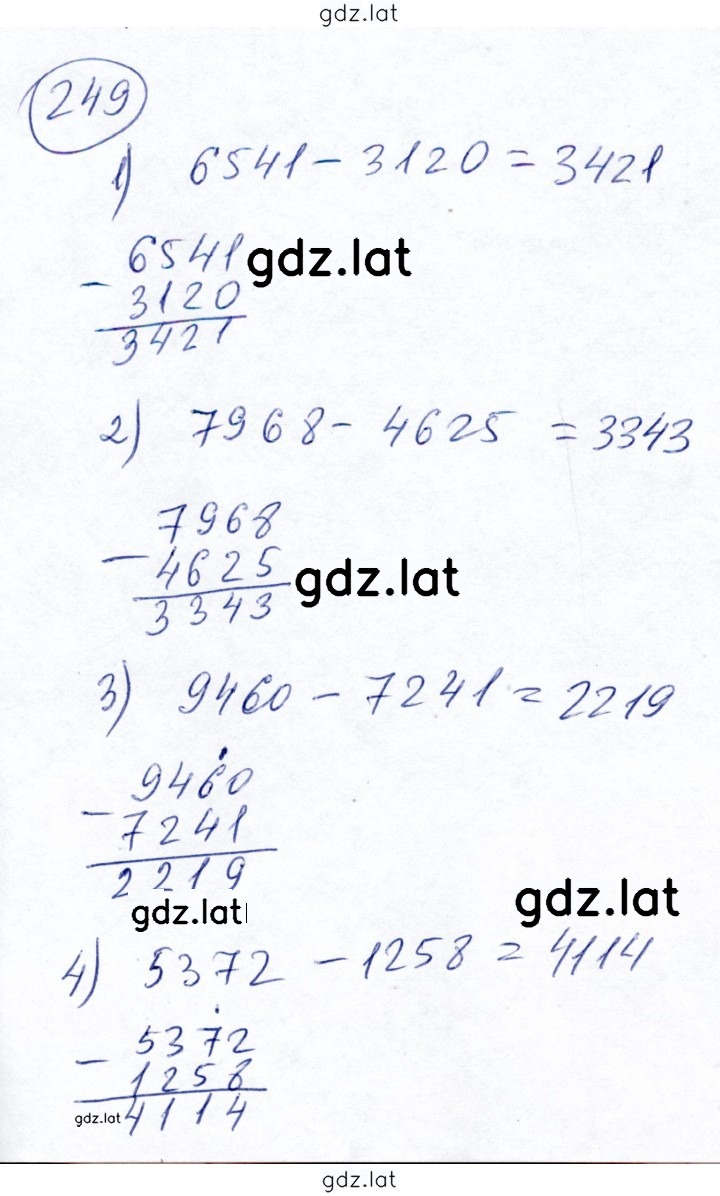 gdz.lat
249
1) 6541 - 3120 = 3421
6541 gdz.lat
- 3120
3421
2) 7968 - 4625 = 3343
7968
- 4625 gdz.lat
3343
3) 9460 - 7241 = 2219
9460
- 7241
2219
gdz.lat
gdz.lat
4) 5372 - 1258 = 4114
5372
- 1258
gdz.lat 4114
gdz.lat